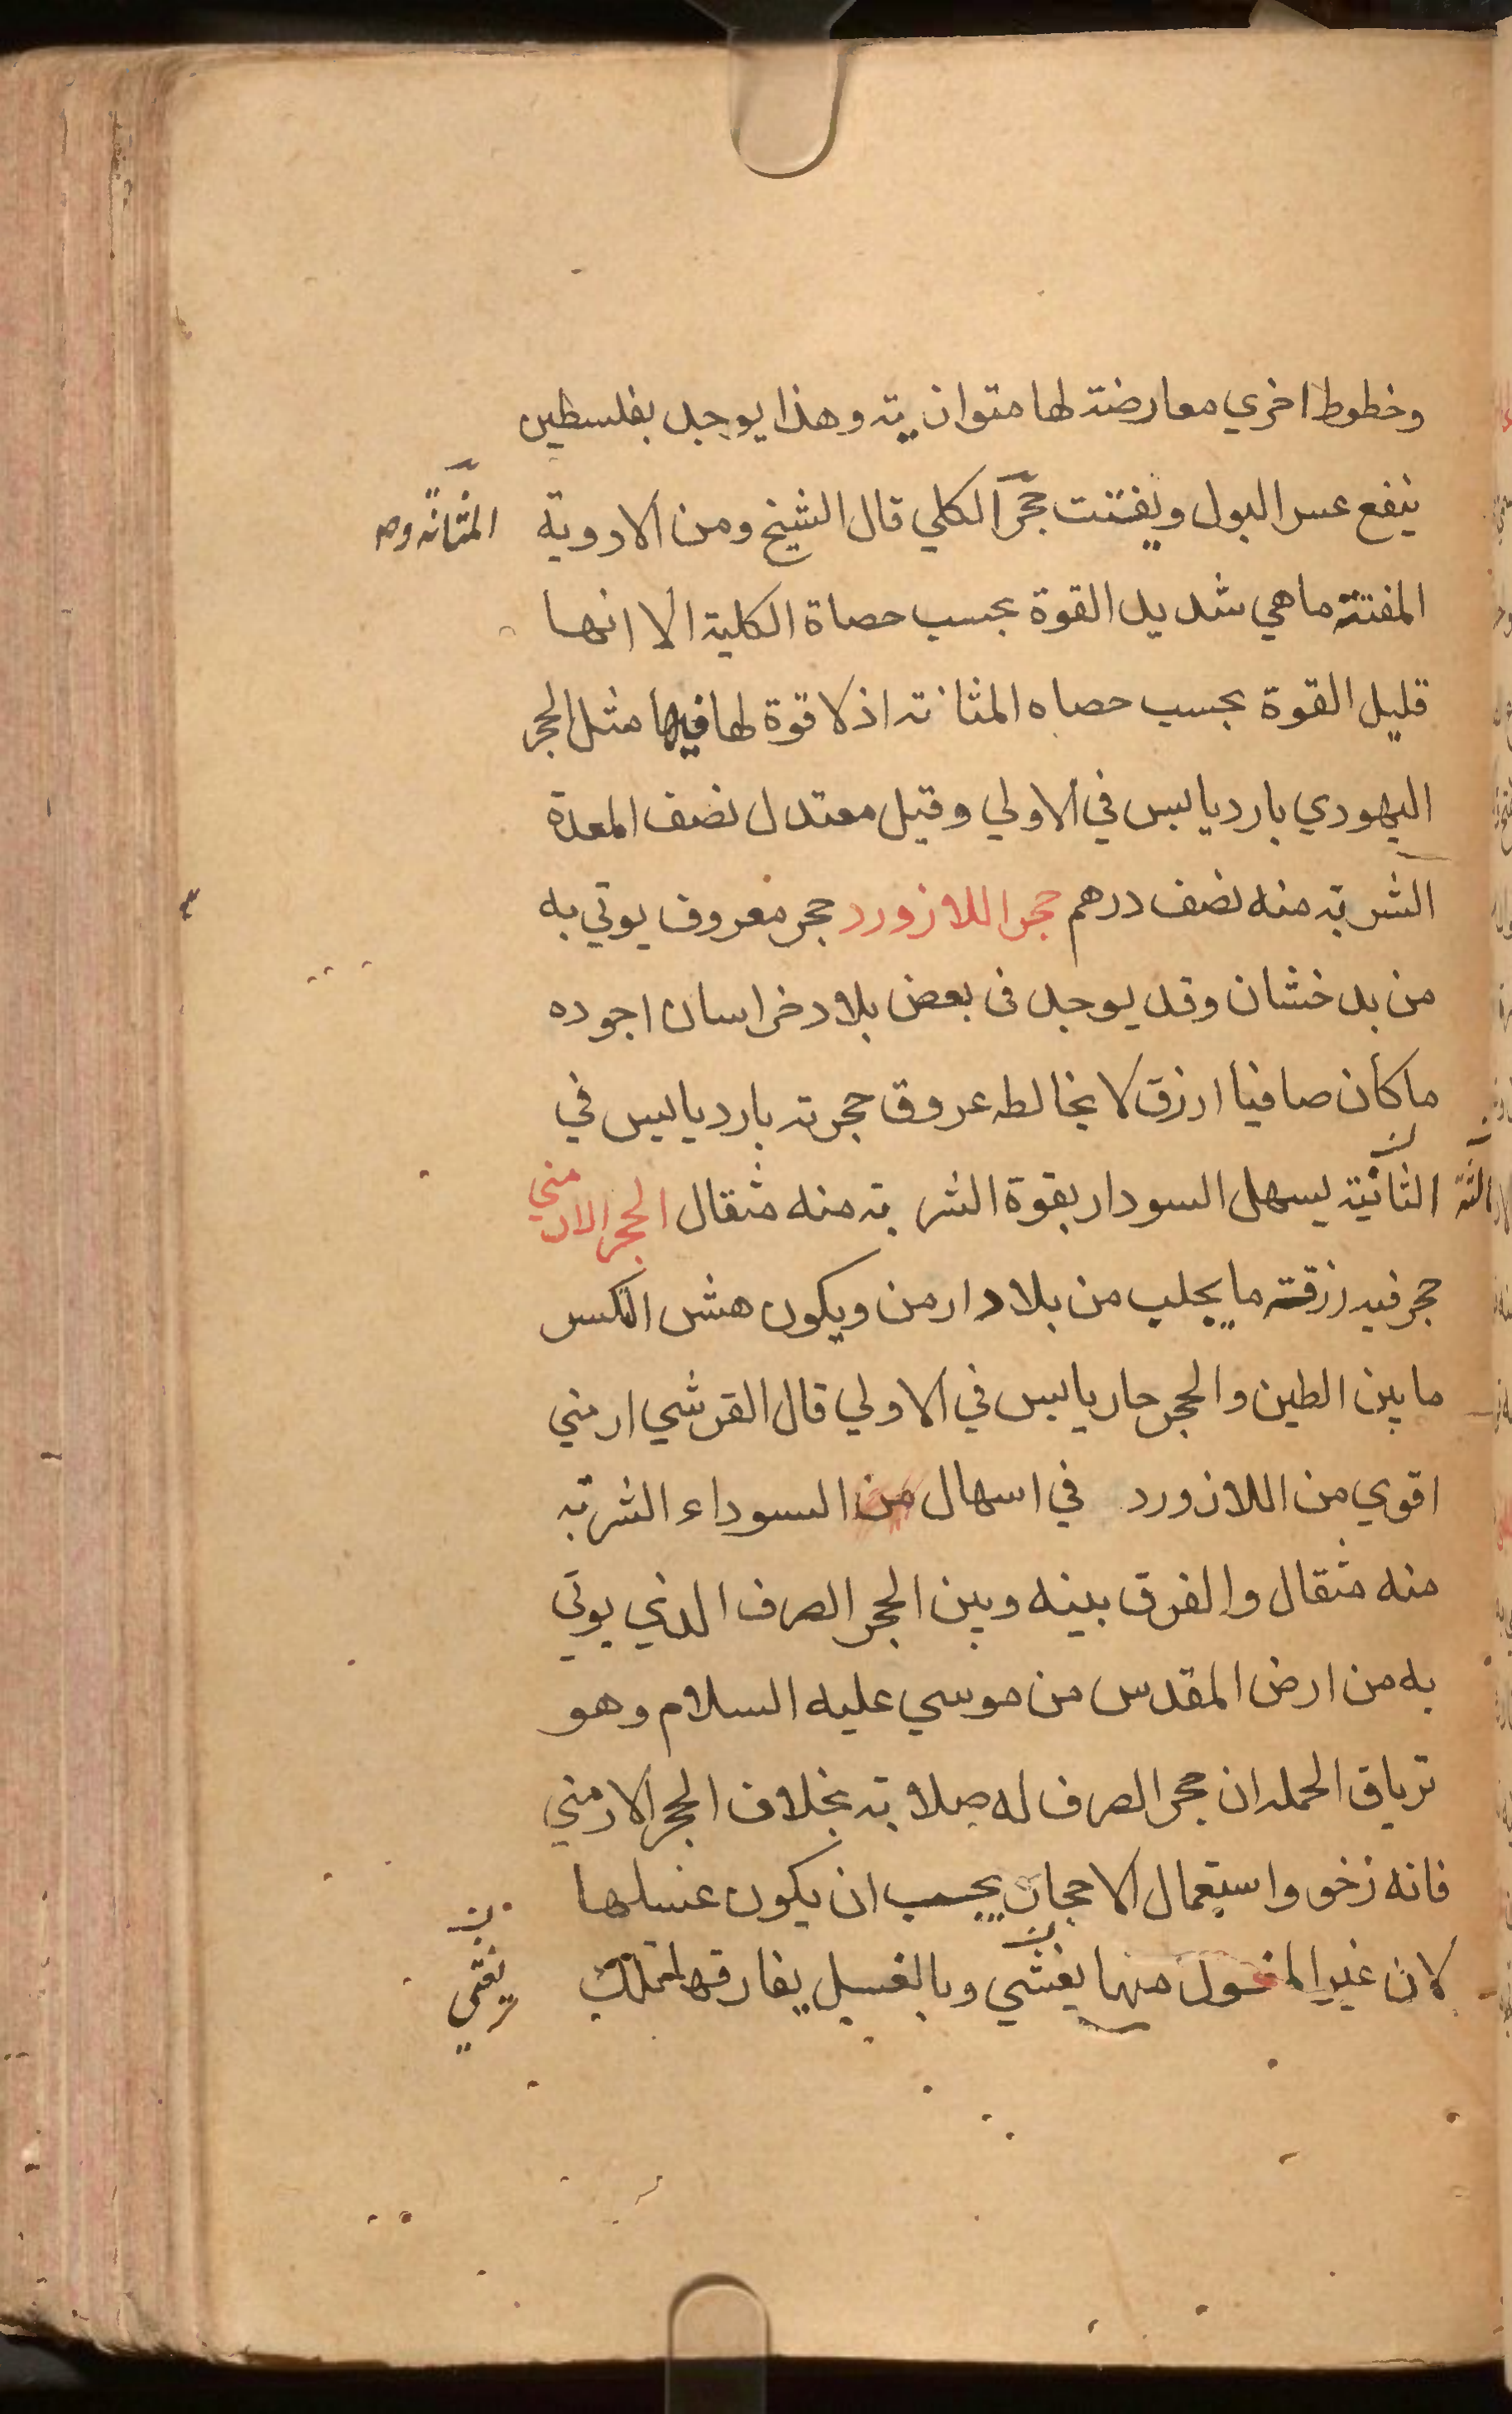 وخطوط اخري معارضة لها متوازيته وهذا يوجد بفلسطين
ينفع عسر البول ويفتت حجر الكلي قال الشيخ ومن الادوية
المثانه وحـ
المفتتة ما هي شديد القوة بحسب حصاة الكلية الا انها
قليل القوة بحسب حصاه المثانة اذ لا قوة لها فيها مثل الحجر
اليهودي بارد يابس في الاولي وقيل معتدل نضف المعدة
الشربة منه نصف درهم حجر اللازورد حجر معروف يوتي به
من بدخشان وقد يوجد في بعض بلاد خراسان اجوده
ما كان صافيا ازرق لا يخالطه عروق حجرية بارد يابس في
الثانية يسهل السودا بقوة الشربة منه مثقال الحجر الارمني
الثالثة
حجر فيه زرقة ما يجلب من بلاد ارمن ويكون هش الكسر
ما بين الطين والحجر حار يابس في الاولي قال القرشي ارمني
اقوي من اللازورد في اسهال من السوداء الشربة
منه مثقال والفرق بينه وبين الحجر الصرف الذي يوتي
به من ارض المقدس من موسي عليه السلام وهو
ترياق الحمله ان حجر الصرف له صلابة بخلاف الحجر الارمني
فانه رخو واستعمال الاحجار يجب ان يكون غسلها
لان غير المغسول منها يغشي وبالغسل يفارقها تلك
يغثي